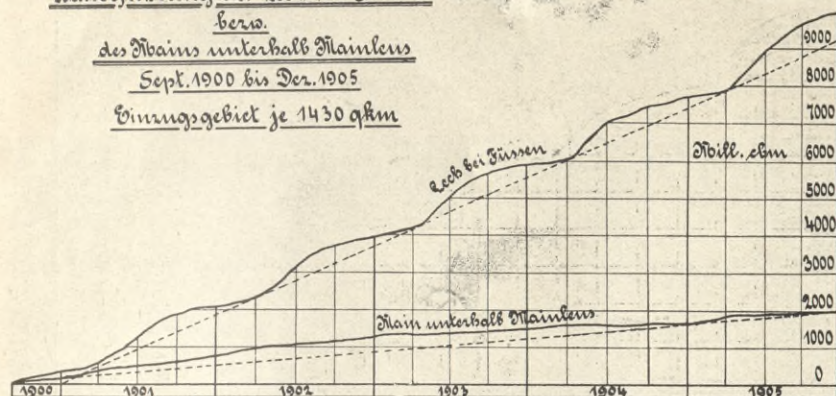 bezw.
des Mains unterhalb Mainleus
Sept. 1900 bis Dez. 1905
Einzugsgebiet je 1430 qkm
Lech bei Füssen
Mill. cbm
Main unterhalb Mainleus
9000
8000
7000
6000
5000
4000
3000
2000
1000
0
1900 1901 1902 1903 1904 1905